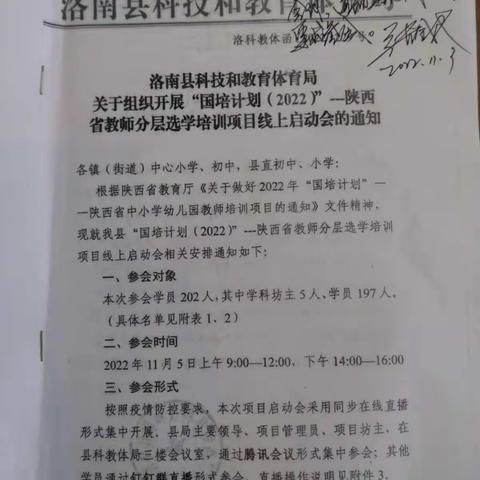 洛南县科技和教育体育
洛科教体函
2022.11.3
洛南县科技和教育体育局
关于组织开展“国培计划（2022）”---陕西
省教师分层选学培训项目线上启动会的通知
各镇（街道）中心小学、初中，县直初中、小学：
根据陕西省教育厅《关于做好2022年“国培计划”—
—陕西省中小学幼儿园教师培训项目的通知》文件精神，
现就我县“国培计划（2022）”---陕西省教师分层选学培训
项目线上启动会相关安排通知如下：
一、参会对象
本次参会学员202人，其中学科坊主5人、学员197人。
（具体名单见附表1、2）
二、参会时间
2022年11月5日上午9:00—12:00，下午14:00—16:00
三、参会形式
按照疫情防控要求，本次项目启动会采用同步在线直播
形式集中开展。县局主要领导、项目管理员、项目坊主，在
县科教体局三楼会议室，通过腾讯会议形式集中参会；其他
学员通过钉钉群直播形式参会，直播操作说明见附件3。